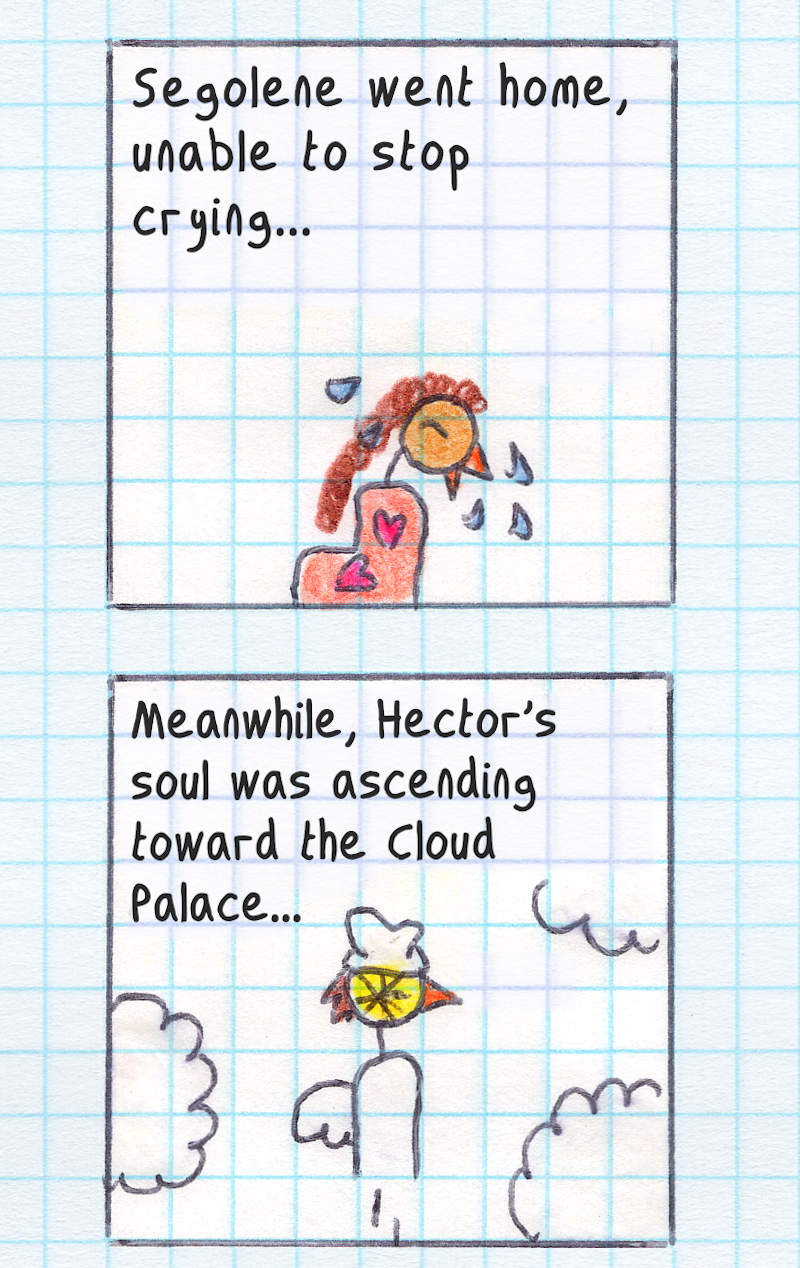 Segolene went home,
unable to stop
crying...
Meanwhile, Hector's
soul was ascending
toward the Cloud
Palace...